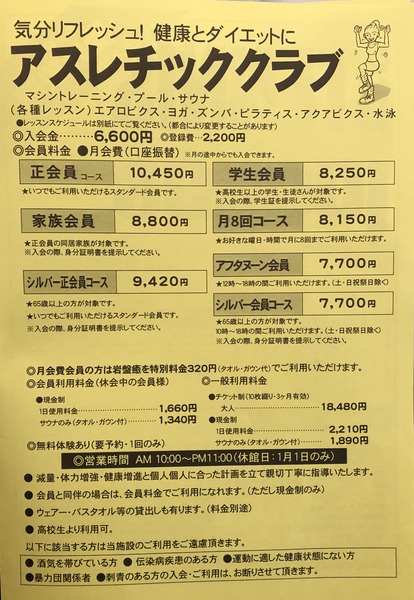 気分リフレッシュ! 健康とダイエットに
アスレチッククラブ
マシントレーニング・プール・サウナ
(各種レッスン)エアロビクス・ヨガ・ズンバ・ピラティス・アクアビクス・水泳
●レッスンスケジュールは別紙にてご覧ください。(都合により変更することがあります)
◎入会金………6,600円 ◎登録費…2,200円
◎会員料金 ●月会費(口座振替) ※月の途中からでも入会できます。
正会員コース 10,450円
★いつでもご利用いただけるスタンダード会員です。
学生会員 8,250円
★高校生以上の学生・生徒さんが対象です。
※入会の際、学生証を提示してください。
家族会員 8,800円
★正会員の同居家族が対象です。
※入会の際、身分証明書を提示してください。
月8回コース 8,150円
★お好きな曜日・時間で月に8回までご利用いただけます。
アフタヌーン会員 7,700円
★12時〜18時の間ご利用いただけます。(土・日祝祭日除く)
シルバー正会員コース 9,420円
★65歳以上の方が対象です。
★いつでもご利用いただけるスタンダード会員です。
※入会の際、身分証明書を提示してください。
シルバー会員コース 7,700円
★65歳以上の方が対象です。
10時〜18時の間ご利用いただけます。(土・日・祝祭日除く)
※入会の際、身分証明書を提示してください。
◎月会費会員の方は岩盤癒を特別料金320円(タオル・ガウン代)でご利用いただけます。
◎会員利用料金(休会中の会員様)
●現金制
1日使用料金………1,660円
サウナのみ(タオル・ガウン付)……1,340円
◎一般利用料金
●チケット制(10枚綴り・3ヶ月有効)
大人………18,480円
●現金制
1日使用料金………2,210円
サウナのみ(タオル・ガウン付)……1,890円
◎無料体験あり(要予約・1回のみ)
◎営業時間 AM 10:00〜PM11:00(休館日:1月1日のみ)
● 減量・体力増強・健康増進と個人個人に合った計画を立て親切丁寧に指導いたします。
● 会員と同伴の場合は、会員料金でご利用になれます。(ただし現金制のみ)
● ウェアー・バスタオル等の貸出しも有ります。(料金別途)
● 高校生より利用可。
以下に該当する方は当施設のご利用をご遠慮頂きます。
● 酒気を帯びている方 ● 伝染病疾患のある方 ●運動に適した健康状態にない方
●暴力団関係者 ●刺青のある方の入会・ご利用は、お断りさせて頂きます。